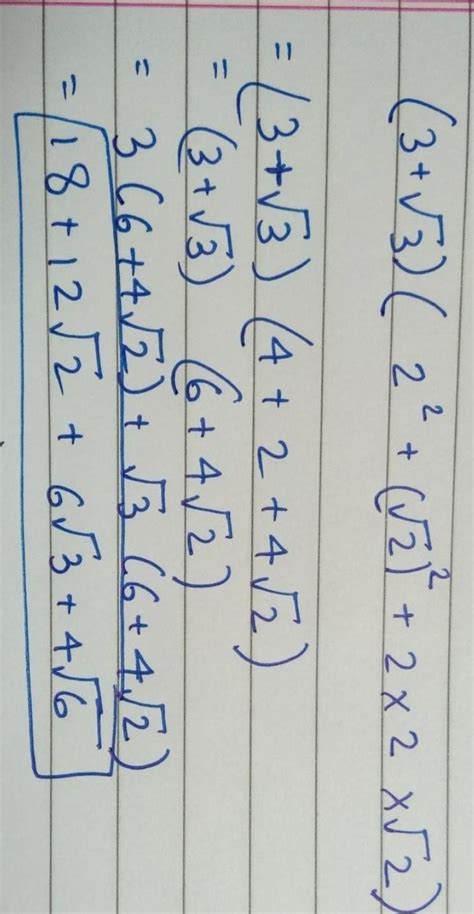 (3+√3)( 2² + (√2)² + 2×2 ×√2)
= (3+√3) (4 + 2 + 4√2)
= (3+√3) (6+4√2)
= 3(6+4√2) + √3 (6+4√2)
= 18+12√2 + 6√3+4√6